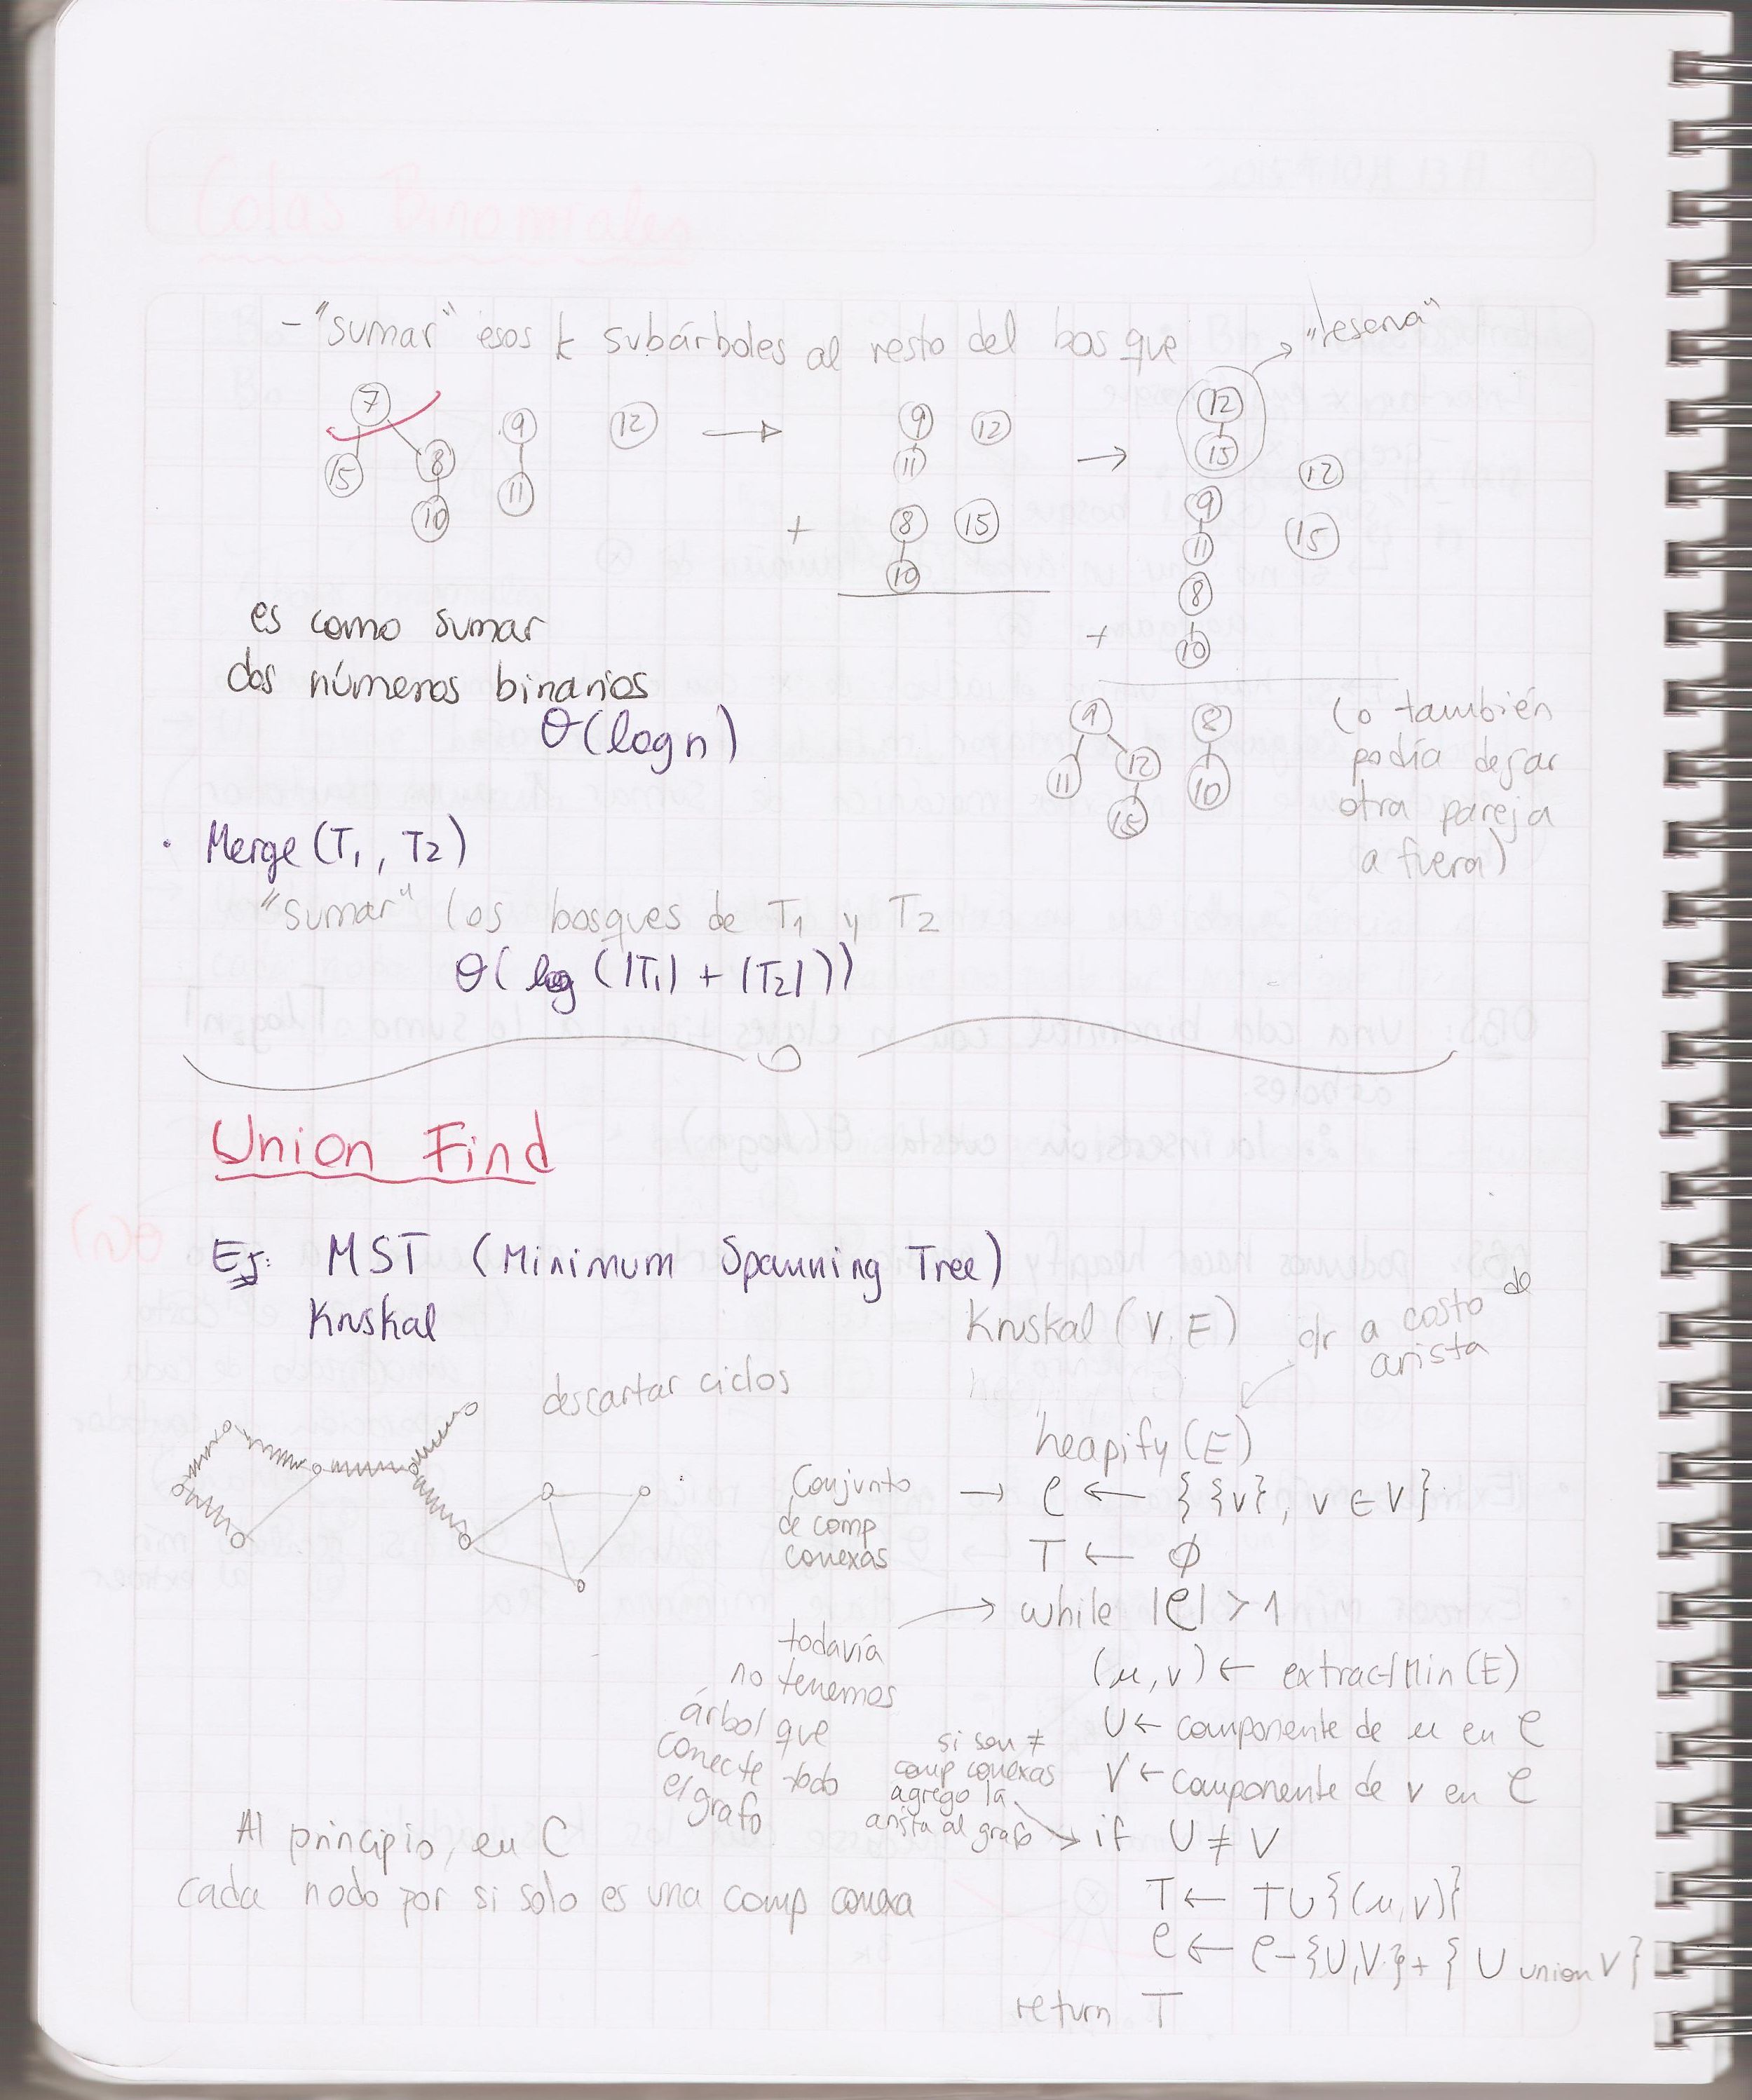 - "sumar" esos k subárboles al resto del bosque
"reserva"
7
15 8
10
9
11
12
→
9 12
11
+ 8 15
10
→
12
15
12
9
15
11
8
+
10
9 8
11 12 10
15
(o también
podía dejar
otra pareja
a fuera)
es como sumar
dos números binarios
Θ(log n)
• Merge(T1, T2)
"sumar" los bosques de T1 y T2
Θ(log(|T1| + |T2|))
Union Find
Ej: MST (Minimum Spanning Tree)
Kruskal
descartar ciclos
Kruskal (V, E)
c/r a costo de
arista
heapify(E)
Conjunto
de comp
conexas
→ C ← {{v}, v ∈ V}
T ← ∅
→ while |C| > 1
todavía
no tenemos
árbol que
conecte todo
el grafo
(u,v) ← extractMin(E)
U ← componente de u en C
V ← componente de v en C
si son ≠
comp conexas
agrego la
arista al grafo
→ if U ≠ V
T ← T∪{(u,v)}
C ← C-{U,V}+{U union V}
return T
Al principio, en C
cada nodo por si solo es una comp conexa